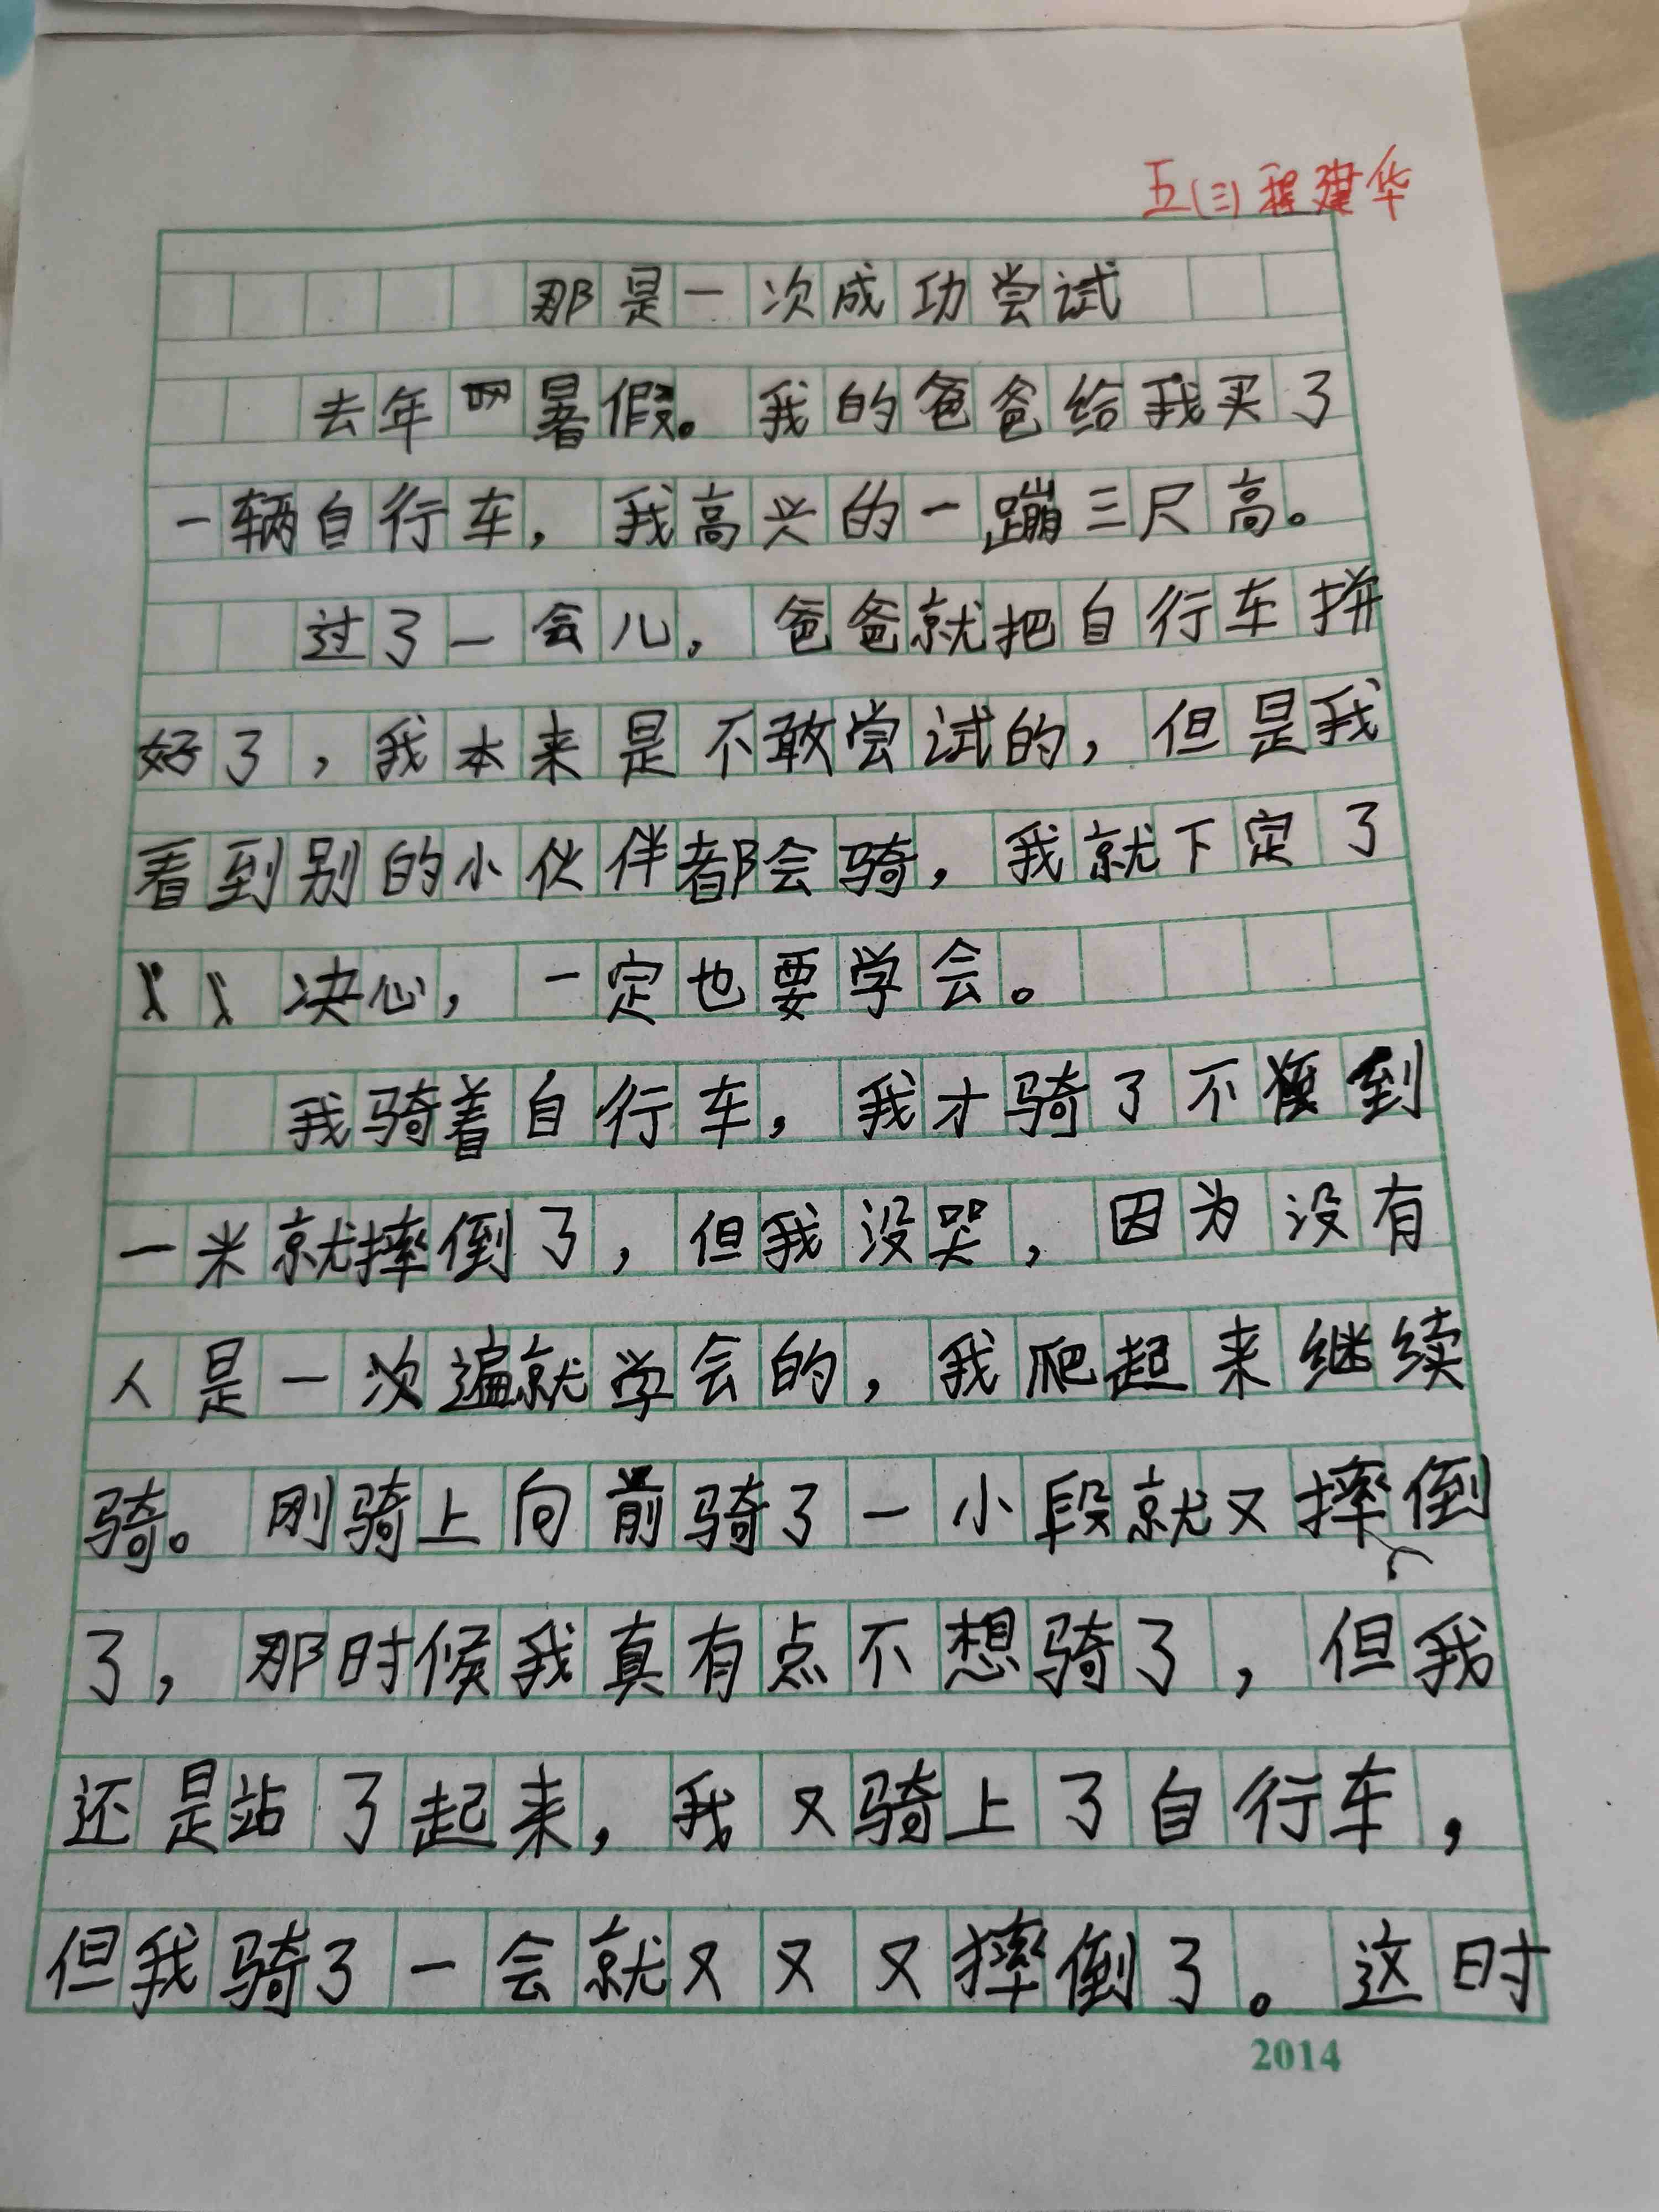 五(三)程建华
那是一次成功尝试
去年暑假。我的爸爸给我买了
一辆自行车，我高兴的一蹦三尺高。
过了一会儿，爸爸就把自行车拼
好了，我本来是不敢尝试的，但是我
看到别的小伙伴都会骑，我就下定了
决心，一定也要学会。
我骑着自行车，我才骑了不到
一米就摔倒了，但我没哭，因为没有
人是一次遍就学会的，我爬起来继续
骑。刚骑上向前骑了一小段就又摔倒
了，那时候我真有点不想骑了，但我
还是站了起来，我又骑上了自行车，
但我骑了一会就又又又摔倒了。这时
2014